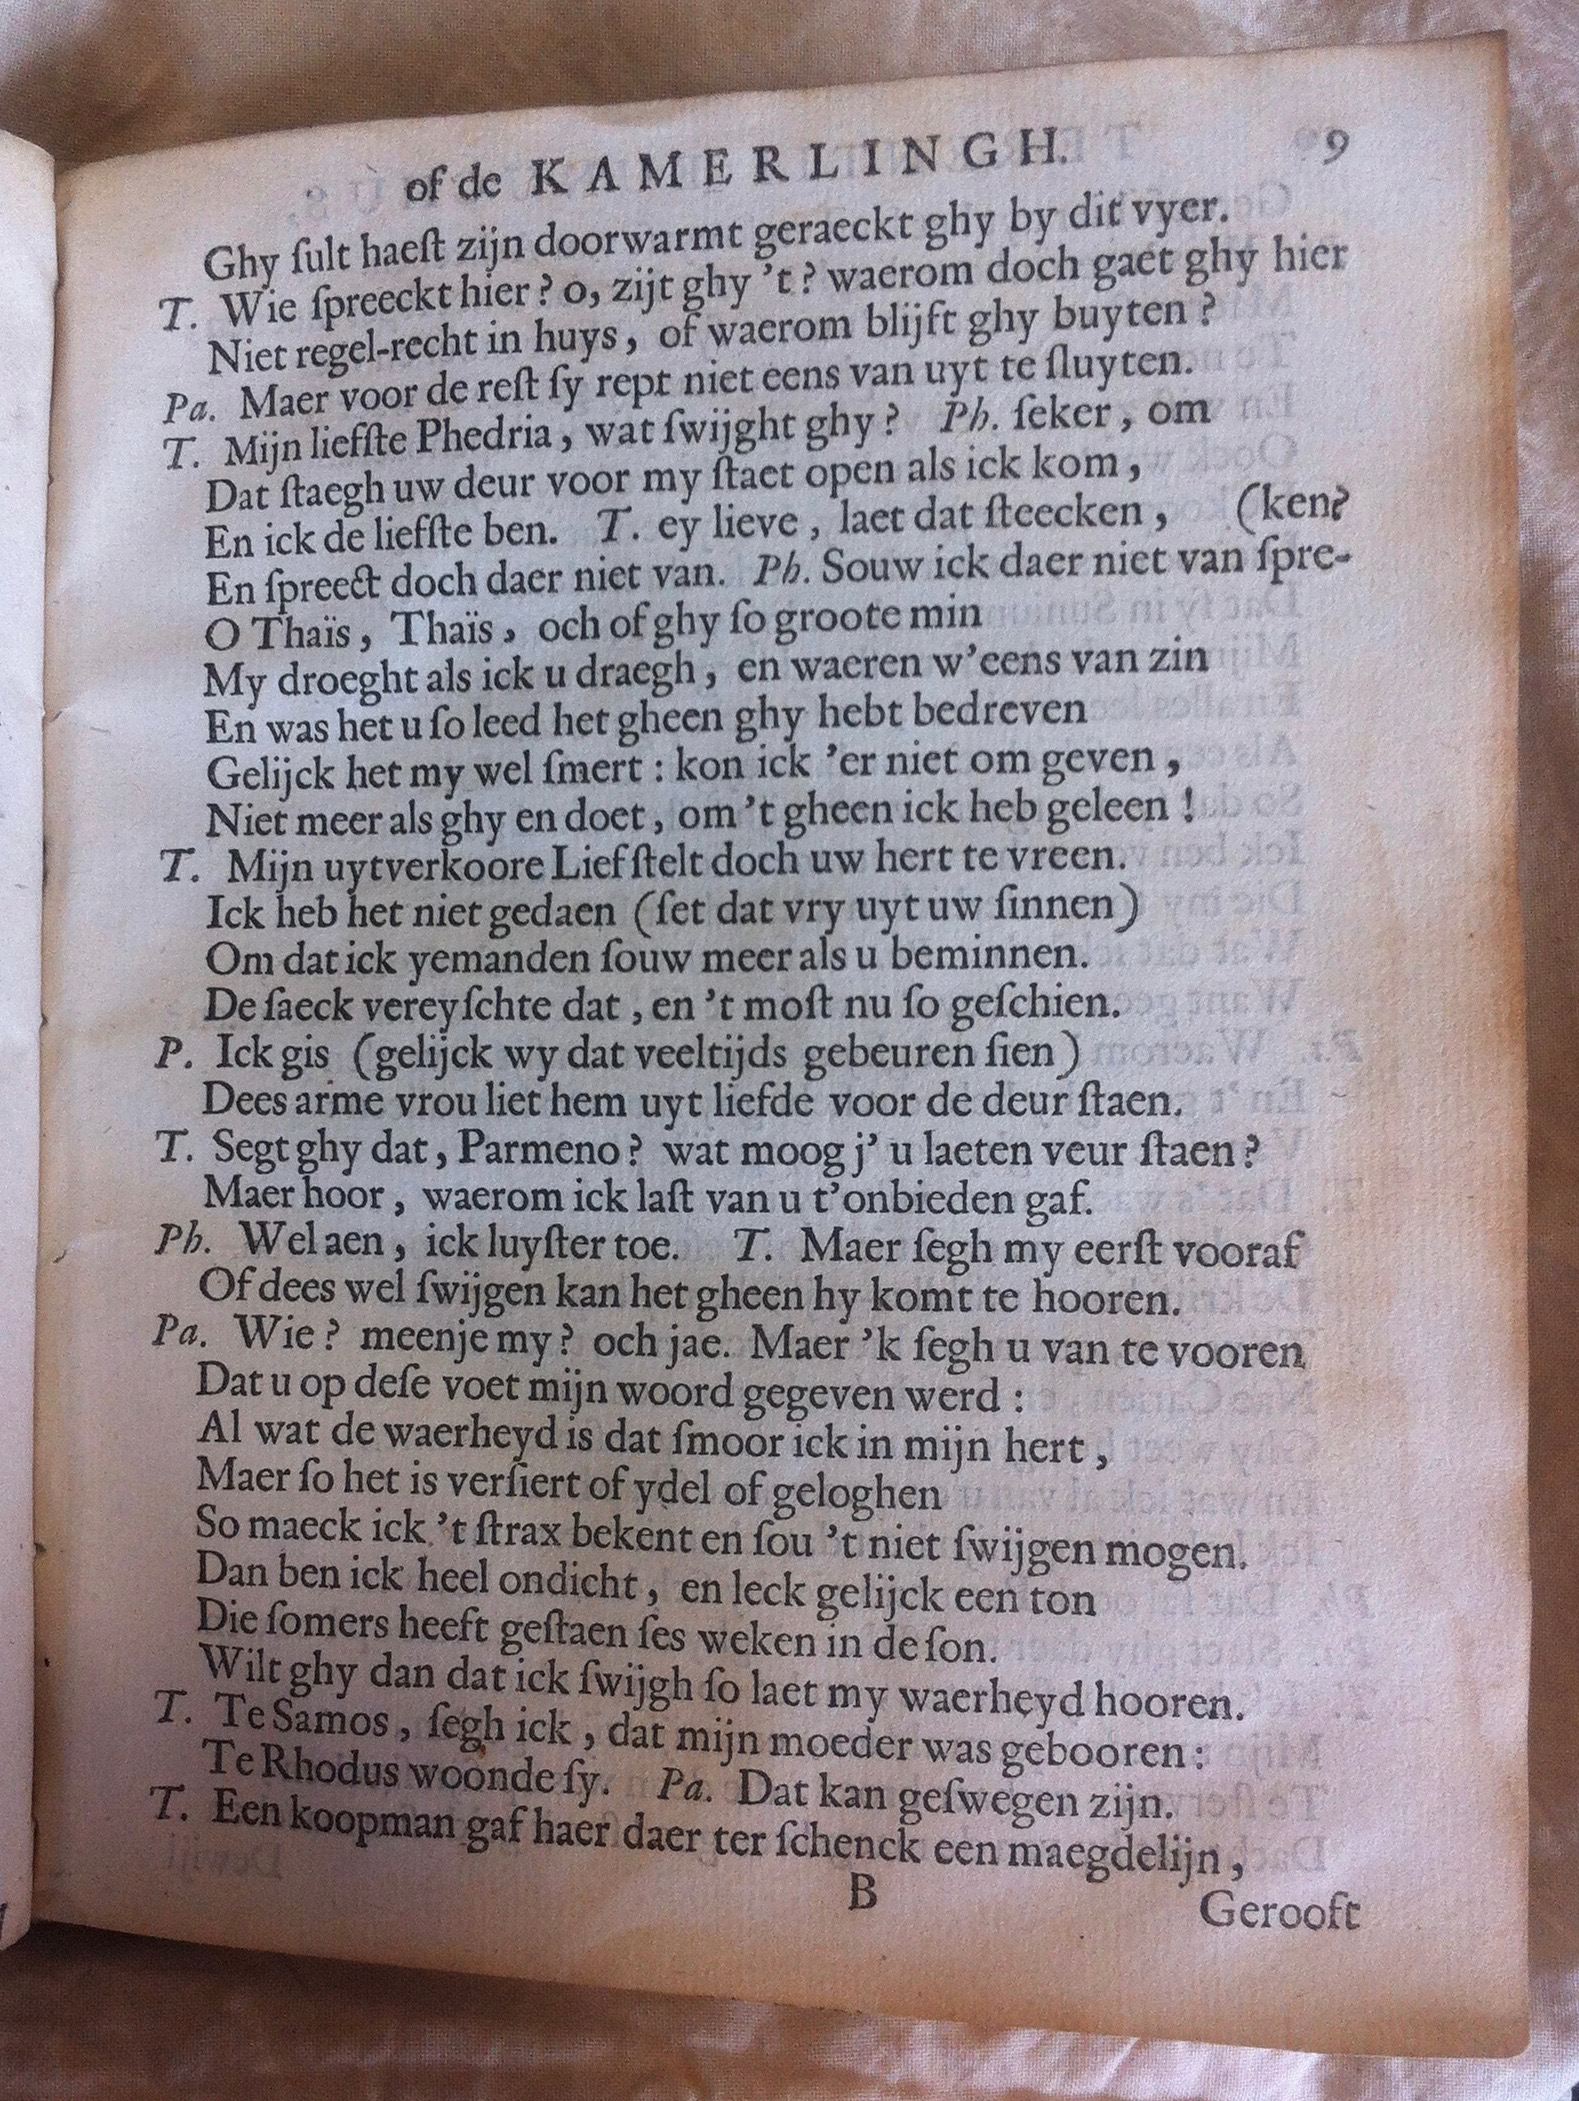 of de KAMERLINGH. 9
Ghy ſult haeſt zijn doorwarmt geraeckt ghy by dit vyer.
T. Wie ſpreeckt hier? o, zijt ghy 't? waerom doch gaet ghy hier
Niet regel-recht in huys, of waerom blijft ghy buyten?
Pa. Maer voor de reſt ſy rept niet eens van uyt te ſluyten.
T. Mijn liefſte Phedria, wat ſwijght ghy? Ph. ſeker, om
Dat ſtaegh uw deur voor my ſtaet open als ick kom,
En ick de liefſte ben. T. ey lieve, laet dat ſteecken, (ken?
En ſpreect doch daer niet van. Ph. Souw ick daer niet van ſpre-
O Thaïs, Thaïs, och of ghy ſo groote min
My droeght als ick u draegh, en waeren w'eens van zin
En was het u ſo leed het gheen ghy hebt bedreven
Gelijck het my wel ſmert: kon ick 'er niet om geven,
Niet meer als ghy en doet, om 't gheen ick heb geleen!
T. Mijn uytverkoore Lief ſtelt doch uw hert te vreen.
Ick heb het niet gedaen (ſet dat vry uyt uw ſinnen)
Om dat ick yemanden ſouw meer als u beminnen.
De ſaeck vereyſchte dat, en 't moſt nu ſo geſchien.
P. Ick gis (gelijck wy dat veeltijds gebeuren ſien)
Dees arme vrou liet hem uyt liefde voor de deur ſtaen.
T. Segt ghy dat, Parmeno? wat moog j' u laeten veur ſtaen?
Maer hoor, waerom ick laſt van u t'onbieden gaf.
Ph. Wel aen, ick luyſter toe. T. Maer ſegh my eerſt vooraf
Of dees wel ſwijgen kan het gheen hy komt te hooren.
Pa. Wie? meenje my? och jae. Maer 'k ſegh u van te vooren
Dat u op deſe voet mijn woord gegeven werd:
Al wat de waerheyd is dat ſmoor ick in mijn hert,
Maer ſo het is verſiert of ydel of geloghen
So maeck ick 't ſtrax bekent en ſou 't niet ſwijgen mogen.
Dan ben ick heel ondicht, en leck gelijck een ton
Die ſomers heeft geſtaen ſes weken in de ſon.
Wilt ghy dan dat ick ſwijgh ſo laet my waerheyd hooren.
T. Te Samos, ſegh ick, dat mijn moeder was gebooren:
Te Rhodus woonde ſy. Pa. Dat kan geſwegen zijn.
T. Een koopman gaf haer daer ter ſchenck een maegdelijn,
B Gerooft